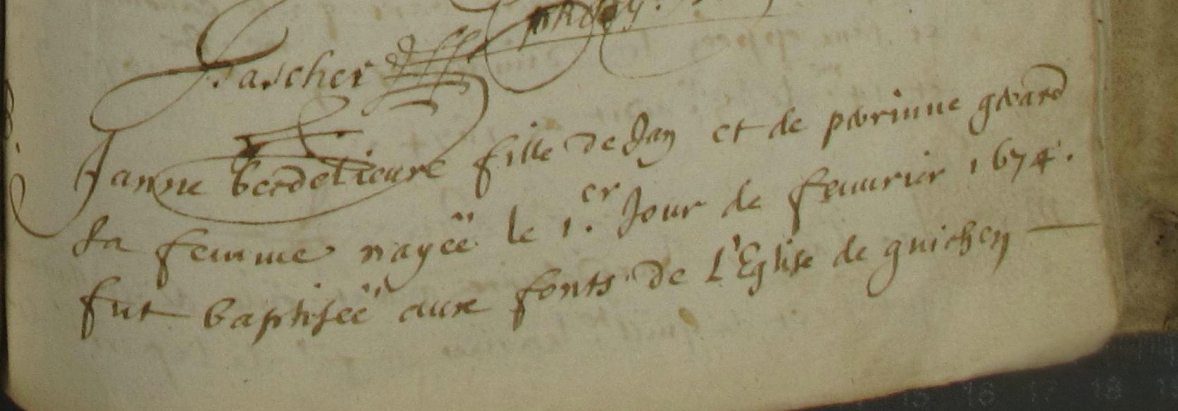 fascher
Janne berdelieure fille de Jan et de perinne gerard
sa femme nayëë le 1.er Jour de feuurier 1674.
fut baptiséë aux fonts de L'Eglise de guichen